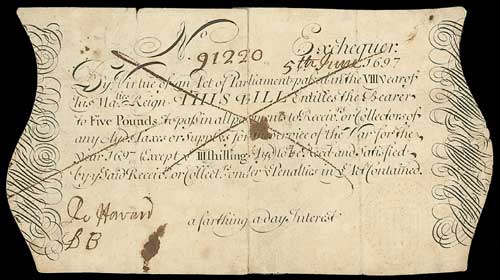 No. 91220 Exchequer.
5th June 1697
By Virtue of an Act of Parliament passed in the VIII Year of
his Maties Reign THIS BILL Entitles the Bearer
to Five Pounds & to pass in all payments to Receivrs or Collectors of
any Ayds Taxes or Supplys for Service of the War for the
Year 1697 Except III Shilling Ayd to be Reced and Satisfied
by Said Receivrs or Collectrs under Penalties in Act Contained.
Ro Howard
BB
a farthing a day Interest